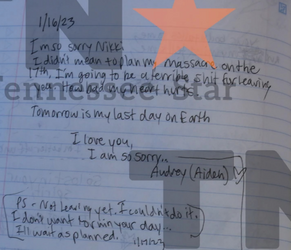 1/16/23
I'm so sorry Nikki
I didn't mean to plan my massacre on the
17th. I'm going to be a terrible shit for leaving
you. How bad my heart hurts
Tennessee Star
Tomorrow is my last day on Earth
I love you,
I am so sorry...
Audrey (Aiden)
TN
PS - Not leaving yet. I couldn't do it.
I don't want to ruin your day...
I'll wait as planned.